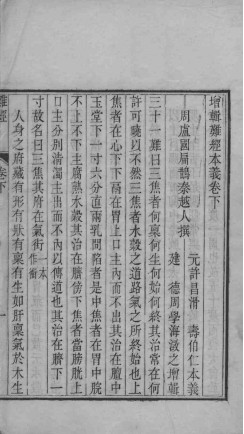 增輯難經本義卷下
周盧國扁鵲秦越人撰
元許昌滑　壽伯仁本義
建　德周學海澂之增輯
三十一難曰三焦者何稟何生何始何終其治常在何
許可曉以不然三焦者水穀之道路氣之所終始也上
焦者在心下下膈在胃上口主內而不出其治在膻中
玉堂下一寸六分直兩乳間陷者是中焦者在胃中脘
不上不下主腐熟水穀其治在臍傍下焦者當膀胱上
口主分別清濁主出而不內以傳道也其治在臍下一
寸故名曰三焦其府在氣街一本作衝
人身之府藏有形有狀有稟有生如肝稟氣於木生
難經
卷下
一